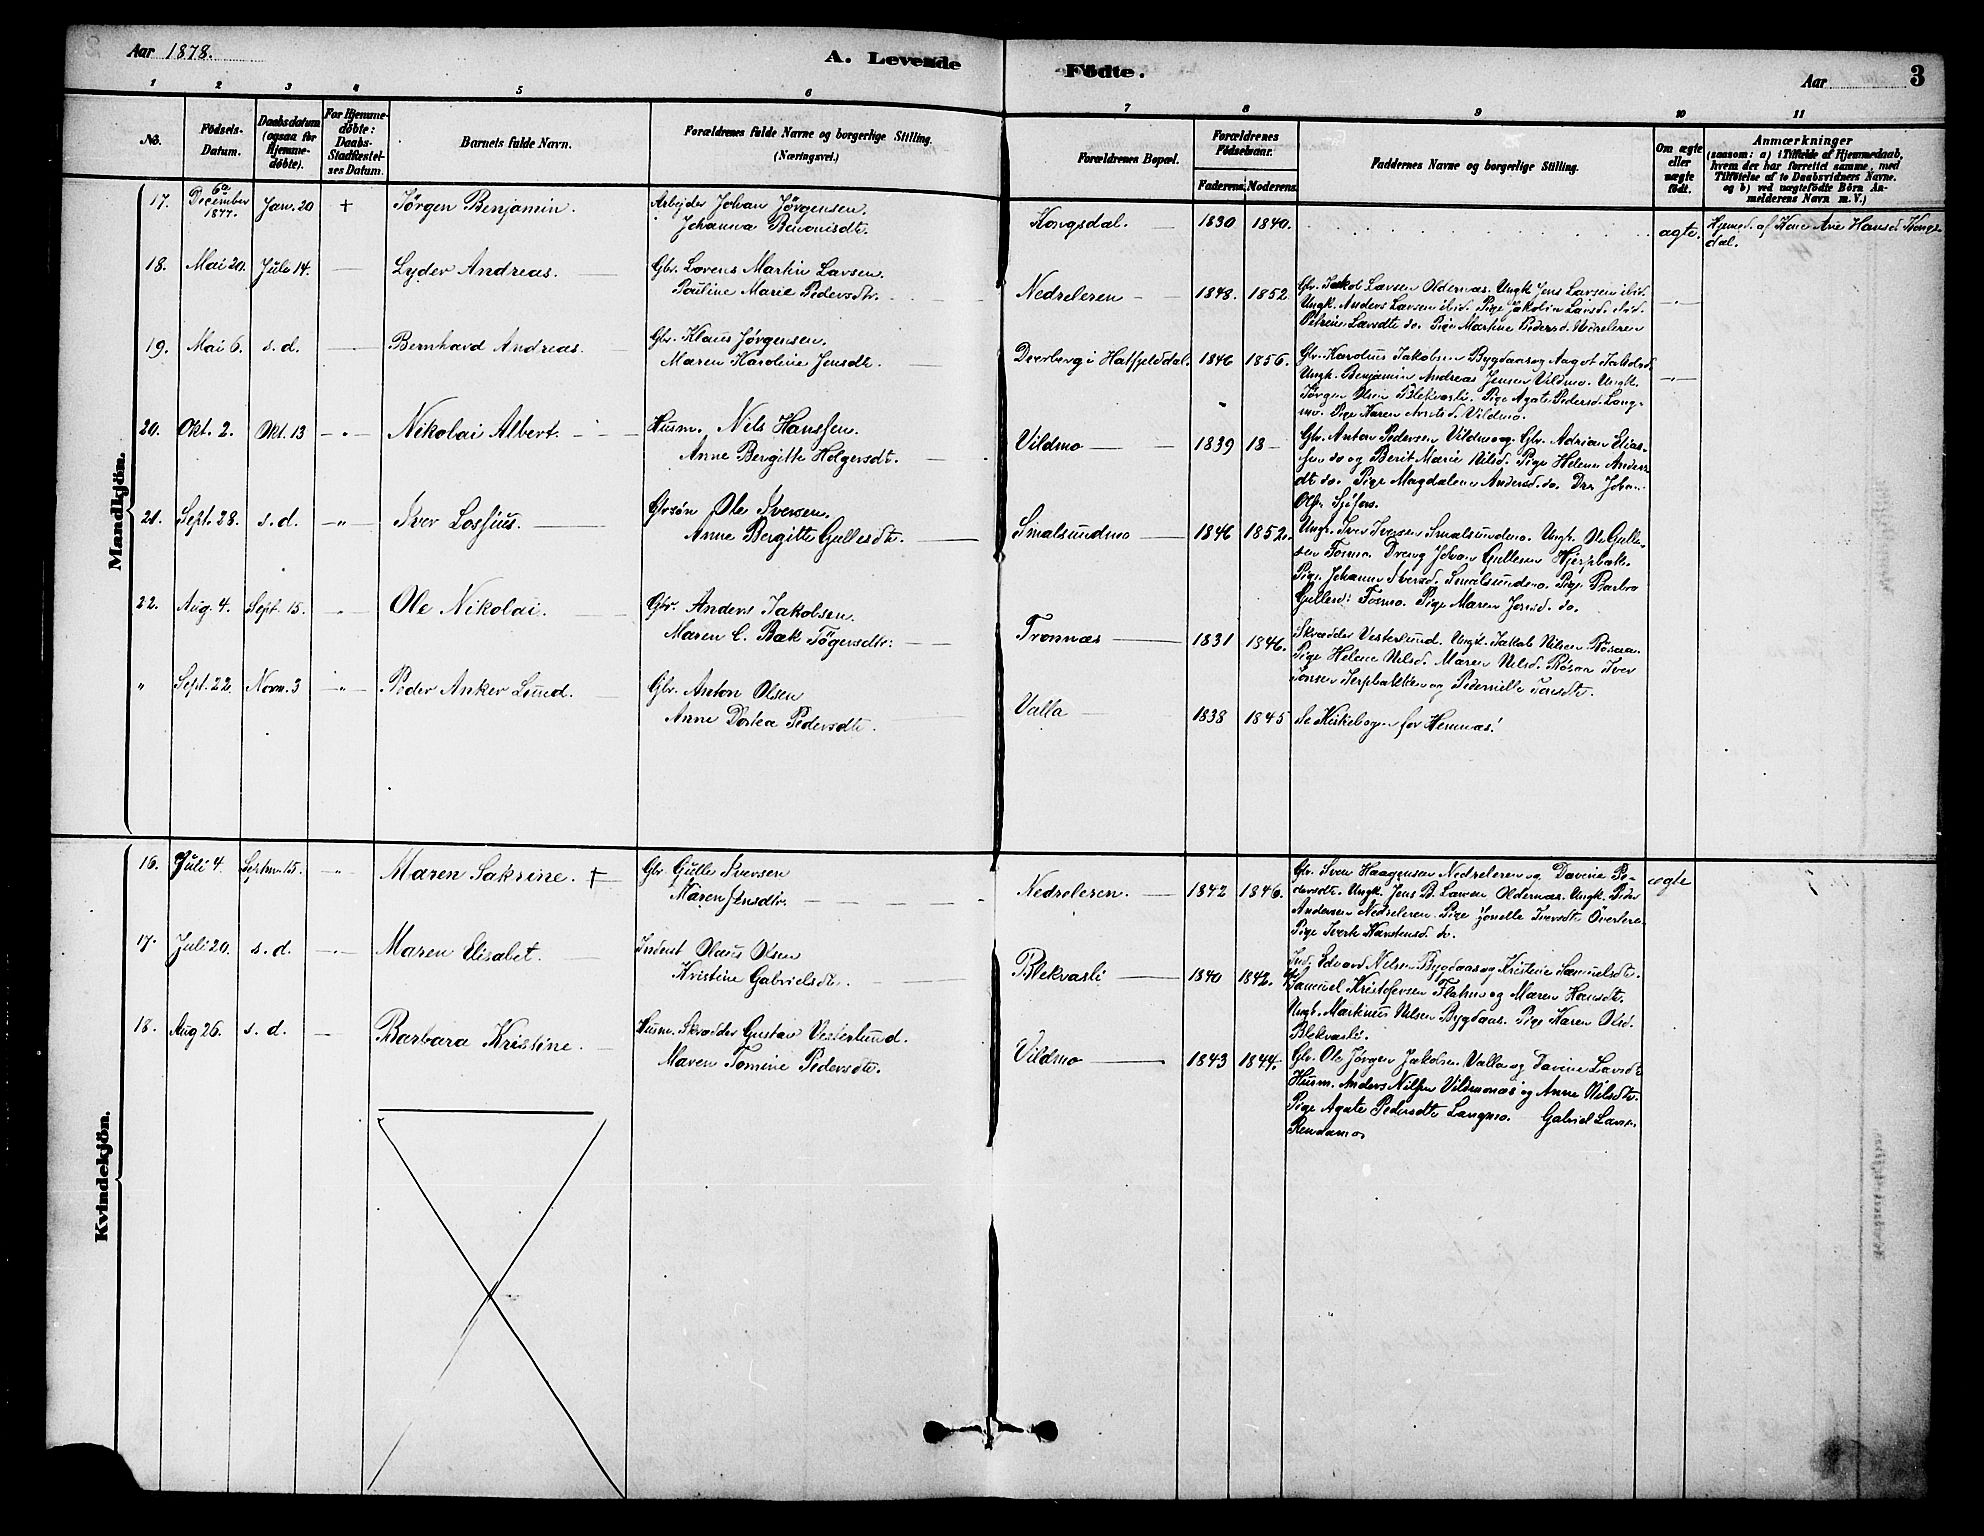 Aar 1878.
A. Levende
Fødte.
Aar
3
1 2 3 4 5 6 7 8 9 10 11
No.
Fødsels-
Datum.
Daabsdatum
(ogsaa for
Hjemme-
døbte).
For Hjemme-
døbte:
Daabs-
Stadfæstel-
ses Datum.
Barnets fulde Navn.
Forældrenes fulde Navne og borgerlige Stilling.
(Næringsvei.)
Forældrenes Bopæl.
Forældrenes
Fødselsaar.
Faderens. Moderens.
Faddernes Navne og borgerlige Stilling.
Om ægte
eller
uægte
født.
Anmærkninger
(saasom: a) i Tilfælde af Hjemmedaab,
hvem der har forrettet samme, med
Tilføielse af to Daabsvidners Navne.
og b) ved uægtefødte Børn An-
melderens Navn m. V.)
Mandkjön.
17. 6te December 1877. Jan. 20 + Jørgen Benjamin. Arbejder Johan Jørgensen.
Johanna Benonisdtr. Kongsdal. 1830 1840. ægte. Hjemmed. af Kone Ane Hansd. Kongs-
dal.
18. Mai 20. Jule 14. Lyder Andreas. Gbr. Lorens Martin Larsen.
Pauline Marie Pedersdtr. Nedreleren 1848. 1852 Gbr. Jakob Larsen Oldernæs. Ungk. Jens Larsen ibid.
Ungk. Anders Larsen ibid. Pige Jakobin Larsd. ibid.
Petrine Larsdtr do. Pige Martine Pedersd. Nedreleren
19. Mai 6. s. d. Bernhard Andreas. Gbr. Klaus Jørgensen.
Maren Karoline Jensdtr. Dverberg i Hatfjelddal. 1846 1856. Gbr. Karolius Jakobsen Bygdaas og Aagot Jakobsd.
Ungk. Benjamin Andreas Jensen Vildmo. Ungk.
Jørgen Olsen Blekvasli. Pige Agate Pedersd. Lang-
mo. Pige Karen Arntsd. Vildmo.
20. Okt. 2. Okt. 13 Nikolai Albert. Husm. Nils Hanssen.
Anne Bergitte Holgersdt. Vildmo 1839 18- Gbr. Anton Pedersen Vildmo og Gbr. Adrian Elias-
sen do og Berit Marie Nilsd. Pige Helene Anders-
dt do. Pige Magdalene Andersd. do. Dr. Johan
Ols. Sjøfors.
21. Sept. 28. s. d. Iver Lossius. Gbrsøn Ole Iversen.
Anne Bergitte Gullesdt. Smalsundmo 1846 1852. Ungk. Iver Iversen Smalsundmo. Ungk. Ole Gulle-
sen Fosmo. Dreng Johan Gullesen Hjerpbak.
Pige Johanna Iversd. Smalsundmo. Pige Barbro
Gullesd. Fosmo. Pige Maren Jonsd. do.
22. Aug. 4. Sept. 15. Ole Nikolai. Gbr. Anders Jakobsen.
Maren C. Bæk Tøgersdtr. Tromnæs 1831 1846. Skrædder Vesterlund. Ungk. Jakob Nilsen Røsaa.
Pige Helene Nilsd. Maren Nilsd. Røsaa Iver
Jonsen Jerpbakken og Pedernille Jonsdtr.
" Sept. 22. Novm. 3 Peder Anker Lund. Gbr. Anton Olsen
Anne Dortea Pedersdtr. Valla 1838 1845 Se Kirkebogen for Hemnæs!
Kvindekjön.
16. Juli 4. Septmr. 15. Maren Sakrine. + Gbr Gulle Iversen
Maren Jensdtr. Nedreleren. 1842 1846. Gbr. Sven Haagensen Nedreleren og Davine Pe-
dersdtr. Ungk. Jens B. Larsen Oldernæs. Ungk. Peder
Andersen Nedreleren. Pige Jonelle Iversdt. Överlere
Pige Iverk Karstensd. do. ægte
17. Juli 20. s. d. Maren Elisabet. Inderst Olaus Olsen
Kristine Gabrielsdtr. Blekvasli 1840 1842. Ind. Edvard Nilsen Bygdaas og Kristine Samuelsdtr.
Samuel Kristofersen Flatmo og Maren Hansdtr.
Ungk. Martinus Nilsen Bygdaas. Pige Karen Olsd.
Blekvasli.
18. Aug 26. s. d. Barbara Kristine. Husm. Skrædder Gustav Vesterlund.
Maren Tomine Pedersdtr. Vildmo 1843 1844. Gbr. Ole Jørgen Jakobsen Valla og Davine Larsdtr
Husm. Anders Nilssen Vildmonæs og Anne Nilsdtr.
Pige Agate Pedersdtr Langmo. Gabriel Larsen
Rendamo